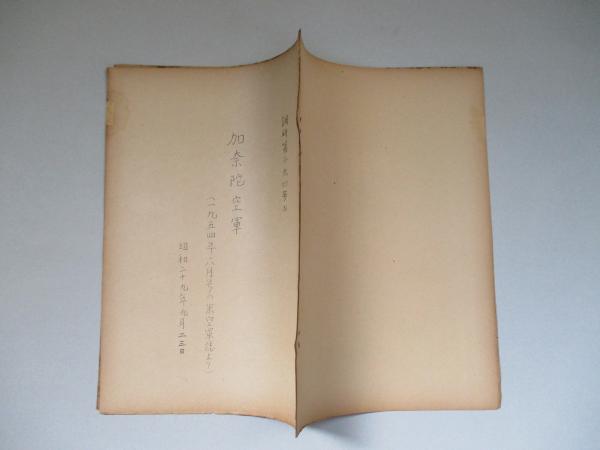 調研第
加奈陀空軍
(一九五四年六月号の米空軍誌より)
昭和二十九年九月二三日